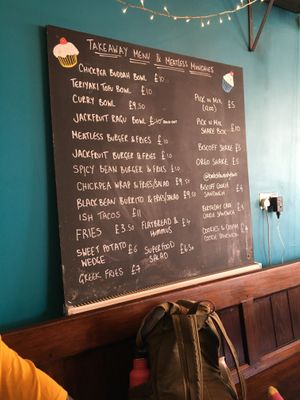 TAKEAWAY MENU & MEATLESS MUNCHIES
CHICKPEA BUDDAH BOWL £10
TERIYAKI TOFU BOWL £10
CURRY BOWL £9.50
JACKFRUIT RAGU BOWL £10
MEATLESS BURGER & FRIES £10
JACKFRUIT BURGER & FRIES £10
SPICY BEAN BURGER & FRIES £10
CHICKPEA WRAP & FRIES/SALAD £9.50
BLACK BEAN BURRITO & FRIES/SALAD £9.50
ISH TACOS £11
FRIES £3.50
FLATBREAD & HUMMUS £4
SWEET POTATO WEDGE £6
SUPERFOOD SALAD £6.50
GREEK FRIES £7
PICK N MIX £5
PICK N MIX SHARE BOX £10
BISCOFF SHAKE £5
OREO SHAKE £5
BISCOFF COOKIE SANDWICH £4
BIRTHDAY CAKE COOKIE SANDWICH £4
COOKIES & CREAM COOKIE SANDWICH £4